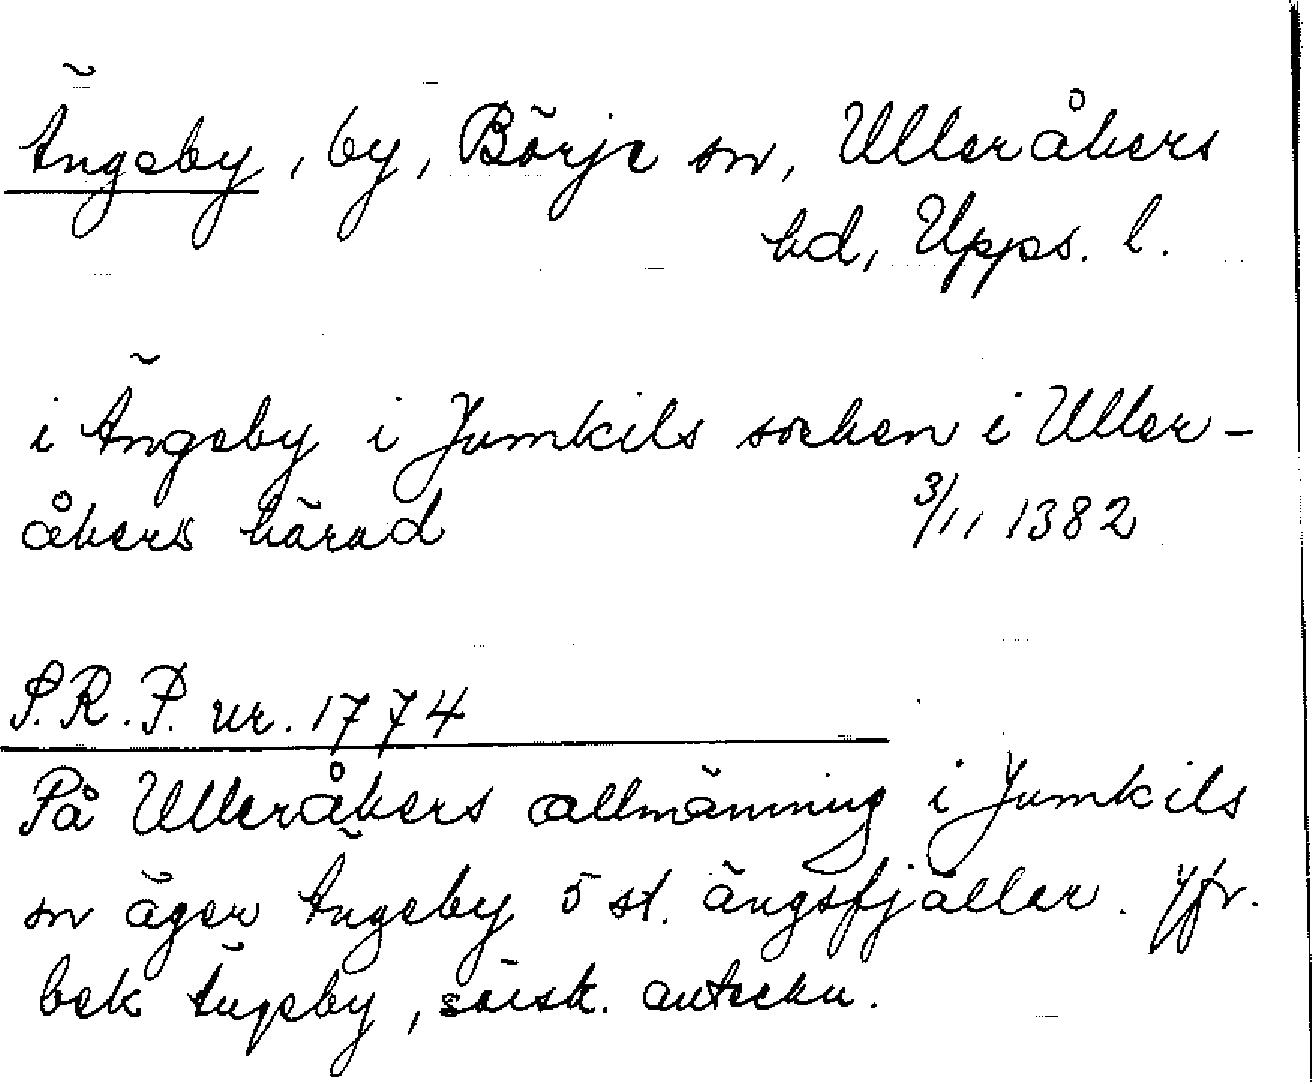 Ängeby, by, Börje sn, Ulleråkers
hd, Upps. l.
i Ängeby i Jumkils socken i Uller-
åkers härad 3/11 1382
S.R.P. nr. 1774
På Ulleråkers allmänning i Jumkils
sn äger Ängeby 5 st. ängsfjällar. Jfr.
bek Ängeby, särsk. anteckn.